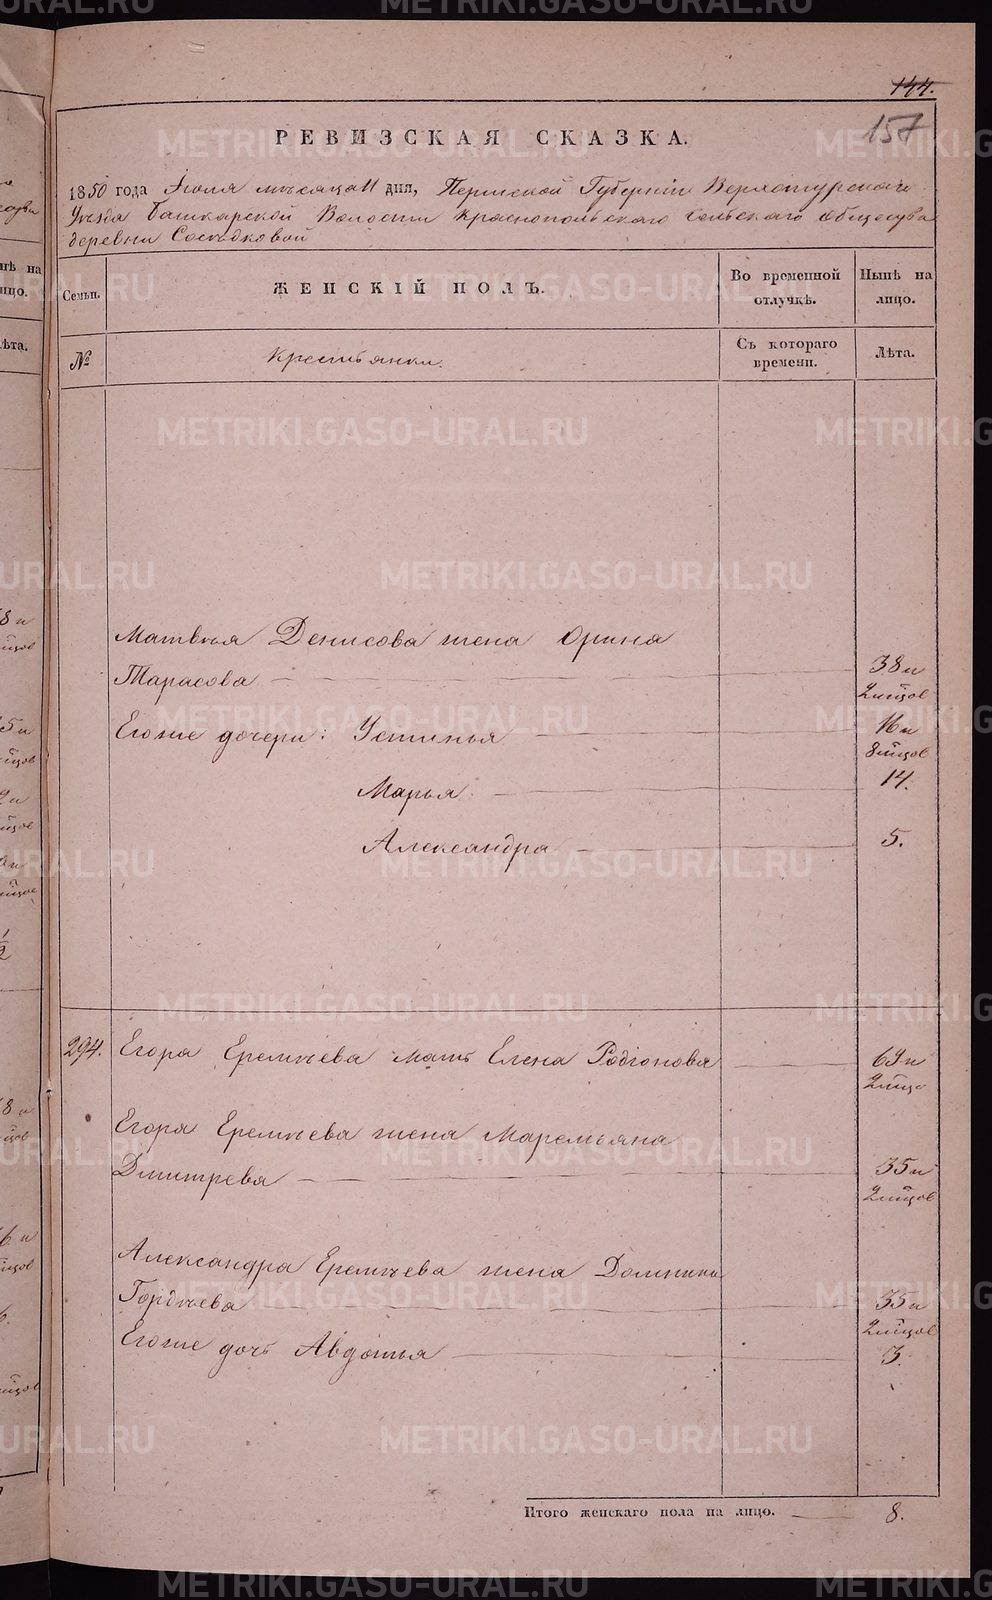 144.
157
РЕВИЗСКАЯ СКАЗКА.
1850 года Июля мѣсяца 11 дня, Пермской Губерніи Верхотурскаго
Уѣзда Башкарской Волости Краснопольскаго сельскаго общества
деревни Сосѣдковой
Семьи.
ЖЕНСКІЙ ПОЛЪ.
Во временной отлучкѣ.
Нынѣ на лицо.
№
Крестьянки.
Съ котораго времени.
Лѣта.
Матвѣя Денисова жена Орина
Тарасова — 38 и
2 мцов
Егоже дочери: Устинья — 16 и
8 мцов
Марья — 14.
Александра — 5.
294. Егора Еремѣева мать Елена Родіонова — 69 и
2 мцо
Егора Еремѣева жена Маремьяна
Дмитрева — 35 и
2 мцов
Александра Еремѣева жена Домника
Гордѣева — 35 и
2 мцов
Егоже дочь Авдотья — 3.
Итого женскаго пола на лицо. — 8.
METRIKI.GASO-URAL.RU